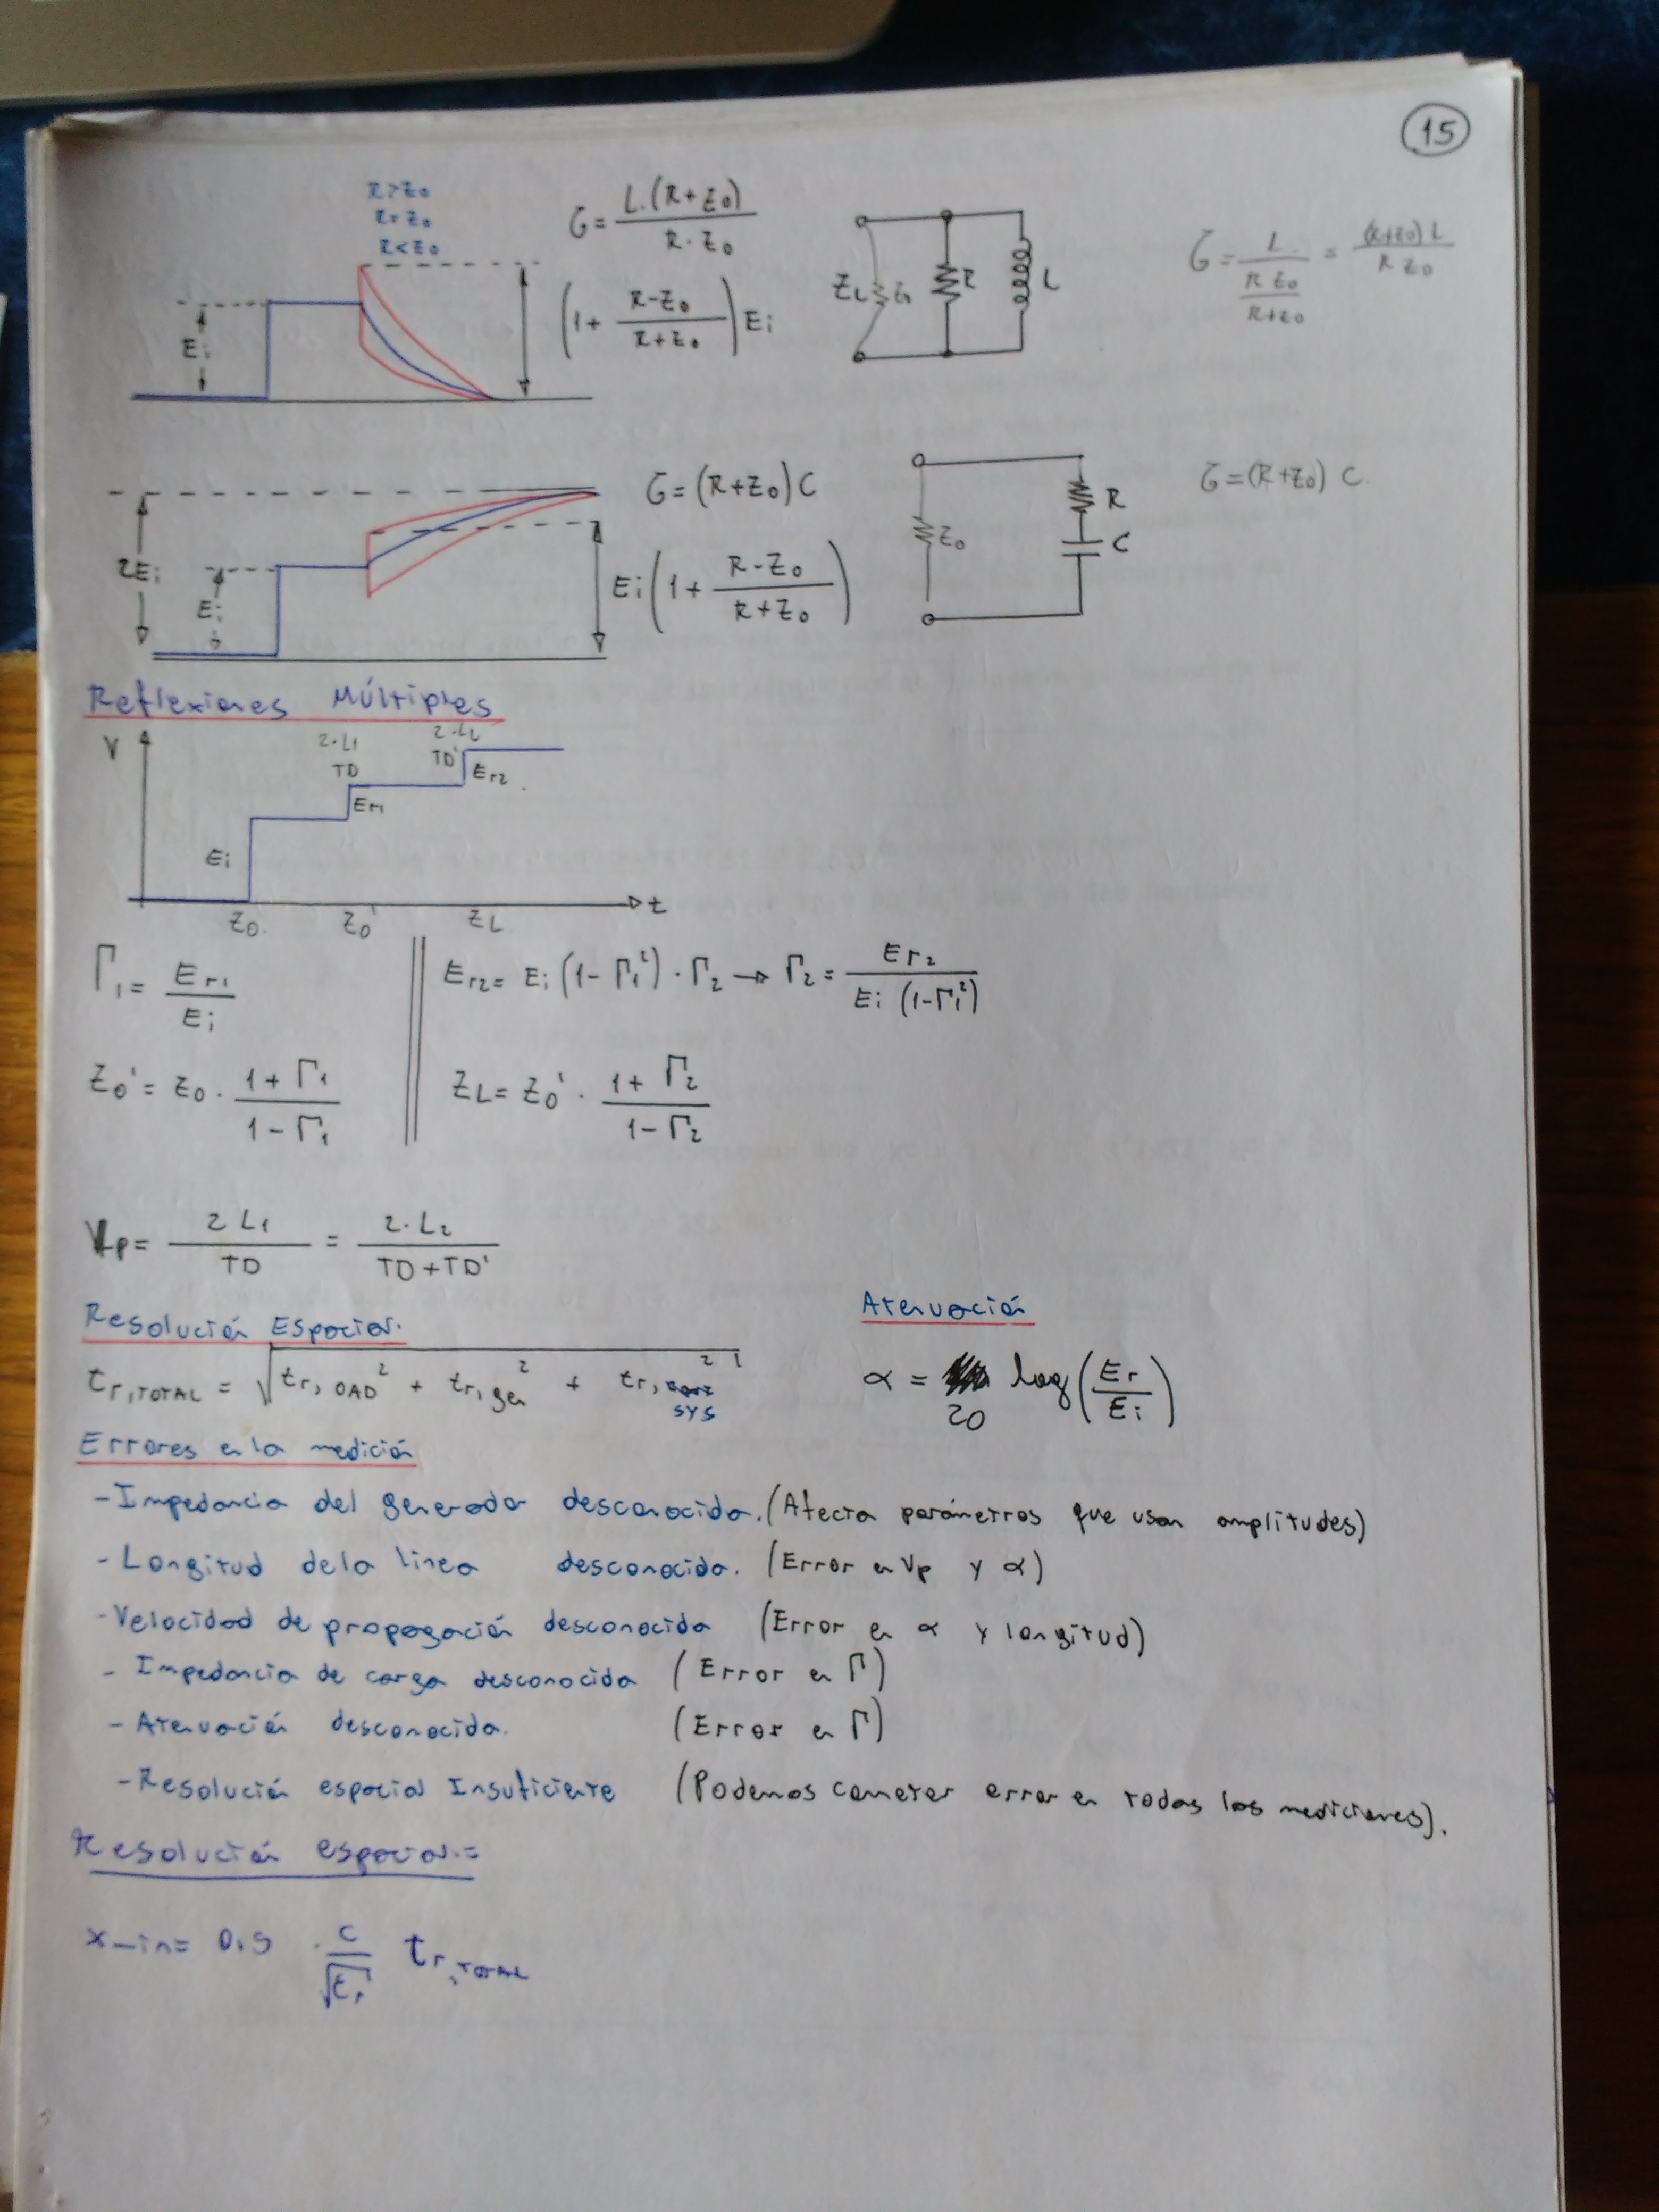 15
R>Z0
R=Z0
R<Z0
Ei
τ = L.(R+Z0) / R·Z0
(1 + (R-Z0)/(R+Z0)) Ei
ZL Z0 R L
τ = L / (R Z0 / (R+Z0)) = (R+Z0) L / R Z0
2Ei
Ei
τ = (R+Z0) C
Ei (1 + (R-Z0)/(R+Z0))
Z0 R C
τ = (R+Z0) C
Reflexiones Múltiples
V
2·L1 2·L2
TD TD'
Er1 Er2
Ei
Z0 Z0' ZL t
Γ1 = Er1 / Ei
Er2 = Ei (1-Γ1²)·Γ2 → Γ2 = Er2 / Ei (1-Γ1²)
Z0' = Z0 · (1+Γ1) / (1-Γ1)
ZL = Z0' · (1+Γ2) / (1-Γ2)
Vp = 2 L1 / TD = 2·L2 / TD+TD'
Resolución Espacial.
tr,TOTAL = √(tr,OAD² + tr,gen² + tr,sys²)
Atenuación
α = 20 log(Er/Ei)
Errores en la medición
- Impedancia del generador desconocida. (Afecta parámetros que usan amplitudes)
- Longitud de la línea desconocida. (Error en Vp y α)
- Velocidad de propagación desconocida (Error en α y longitud)
- Impedancia de carga desconocida (Error en Γ)
- Atenuación desconocida. (Error en Γ)
- Resolución espacial Insuficiente (Podemos cometer error en todas las mediciones).
Resolución espacial:=
xmin = 0.5 · c/√εr tr,TOTAL